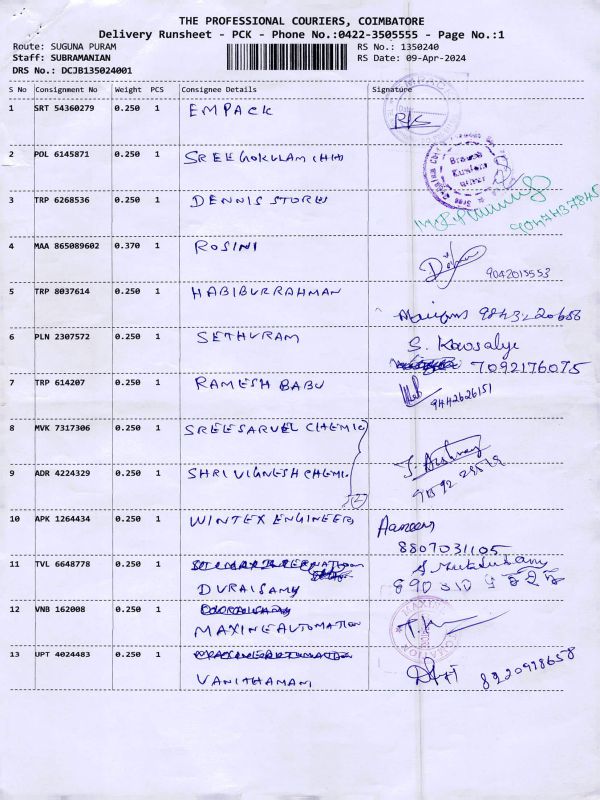 THE PROFESSIONAL COURIERS, COIMBATORE
Delivery Runsheet - PCK - Phone No.:0422-3505555 - Page No.:1
Route: SUGUNA PURAM RS No.: 1350240
Staff: SUBRAMANIAN RS Date: 09-Apr-2024
DRS No.: DCJB135024001
S No Consignment No Weight PCS Consignee Details Signature
1 SRT 54360279 0.250 1 EMPACK
2 POL 6145871 0.250 1 SREEGOKULAM (HH)
3 TRP 6268536 0.250 1 DENNIS STORES
4 MAA 865089602 0.370 1 ROSINI
9042015553
5 TRP 8037614 0.250 1 HABIBURRAHMAN
6 PLN 2307572 0.250 1 SETHURAM S. Kowsalye
7092176075
7 TRP 614207 0.250 1 RAMESH BABU
9442626151
8 MVK 7317306 0.250 1 SREESARVEL CHEMIC
9 ADR 4224329 0.250 1 SHRI VIGNESH CHEMI
(2)
10 APK 1264434 0.250 1 WINTEX ENGINEERS
8807031105
11 TVL 6648778 0.250 1
DURAISAMY
12 VNB 162008 0.250 1
MAXINE AUTOMATION
13 UPT 4024483 0.250 1
VANITHAMANI 8220918658